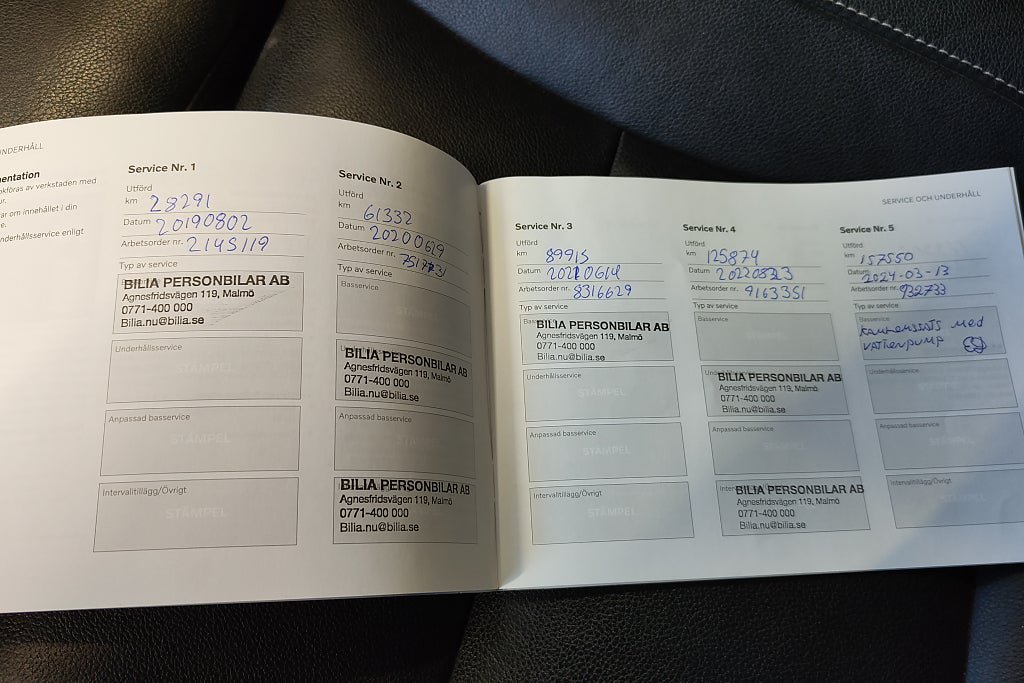 UNDERHÅLL
mentation
okföras av verkstaden med
ur.
rar om innehållet i din
e.
nderhållsservice enligt
Service Nr. 1
Utförd
km 28291
Datum 20190802
Arbetsorder nr. 2145119
Typ av service
BILIA PERSONBILAR AB
Agnesfridsvägen 119, Malmö
0771-400 000
Bilia.nu@bilia.se
Underhållsservice
STÄMPEL
Anpassad basservice
STÄMPEL
Intervalltillägg/Övrigt
STÄMPEL
Service Nr. 2
Utförd
km 61332
Datum 20200629
Arbetsorder nr.
Typ av service
Basservice
BILIA PERSONBILAR AB
Agnesfridsvägen 119, Malmö
0771-400 000
Bilia.nu@bilia.se
Anpassad basservice
STÄMPEL
BILIA PERSONBILAR AB
Agnesfridsvägen 119, Malmö
0771-400 000
Bilia.nu@bilia.se
SERVICE OCH UNDERHÅLL
Service Nr. 3
Utförd
km 89915
Datum 20210614
Arbetsorder nr. 8316629
Typ av service
BILIA PERSONBILAR AB
Agnesfridsvägen 119, Malmö
0771-400 000
Bilia.nu@bilia.se
Underhållsservice
STÄMPEL
Anpassad basservice
STÄMPEL
Intervalltillägg/Övrigt
STÄMPEL
Service Nr. 4
Utförd
km 125874
Datum 20220823
Arbetsorder nr. 9163351
Typ av service
Basservice
BILIA PERSONBILAR AB
Agnesfridsvägen 119, Malmö
0771-400 000
Bilia.nu@bilia.se
Anpassad basservice
STÄMPEL
BILIA PERSONBILAR AB
Agnesfridsvägen 119, Malmö
0771-400 000
Bilia.nu@bilia.se
Service Nr. 5
Utförd
km 157550
Datum 2024-03-13
Arbetsorder nr. 932733
Typ av service
Basservice
KAMREMSATS med
VATTENPUMP
Underhållsservice
Anpassad basservice
STÄMPEL
Intervalltillägg/Övrigt
STÄMPEL